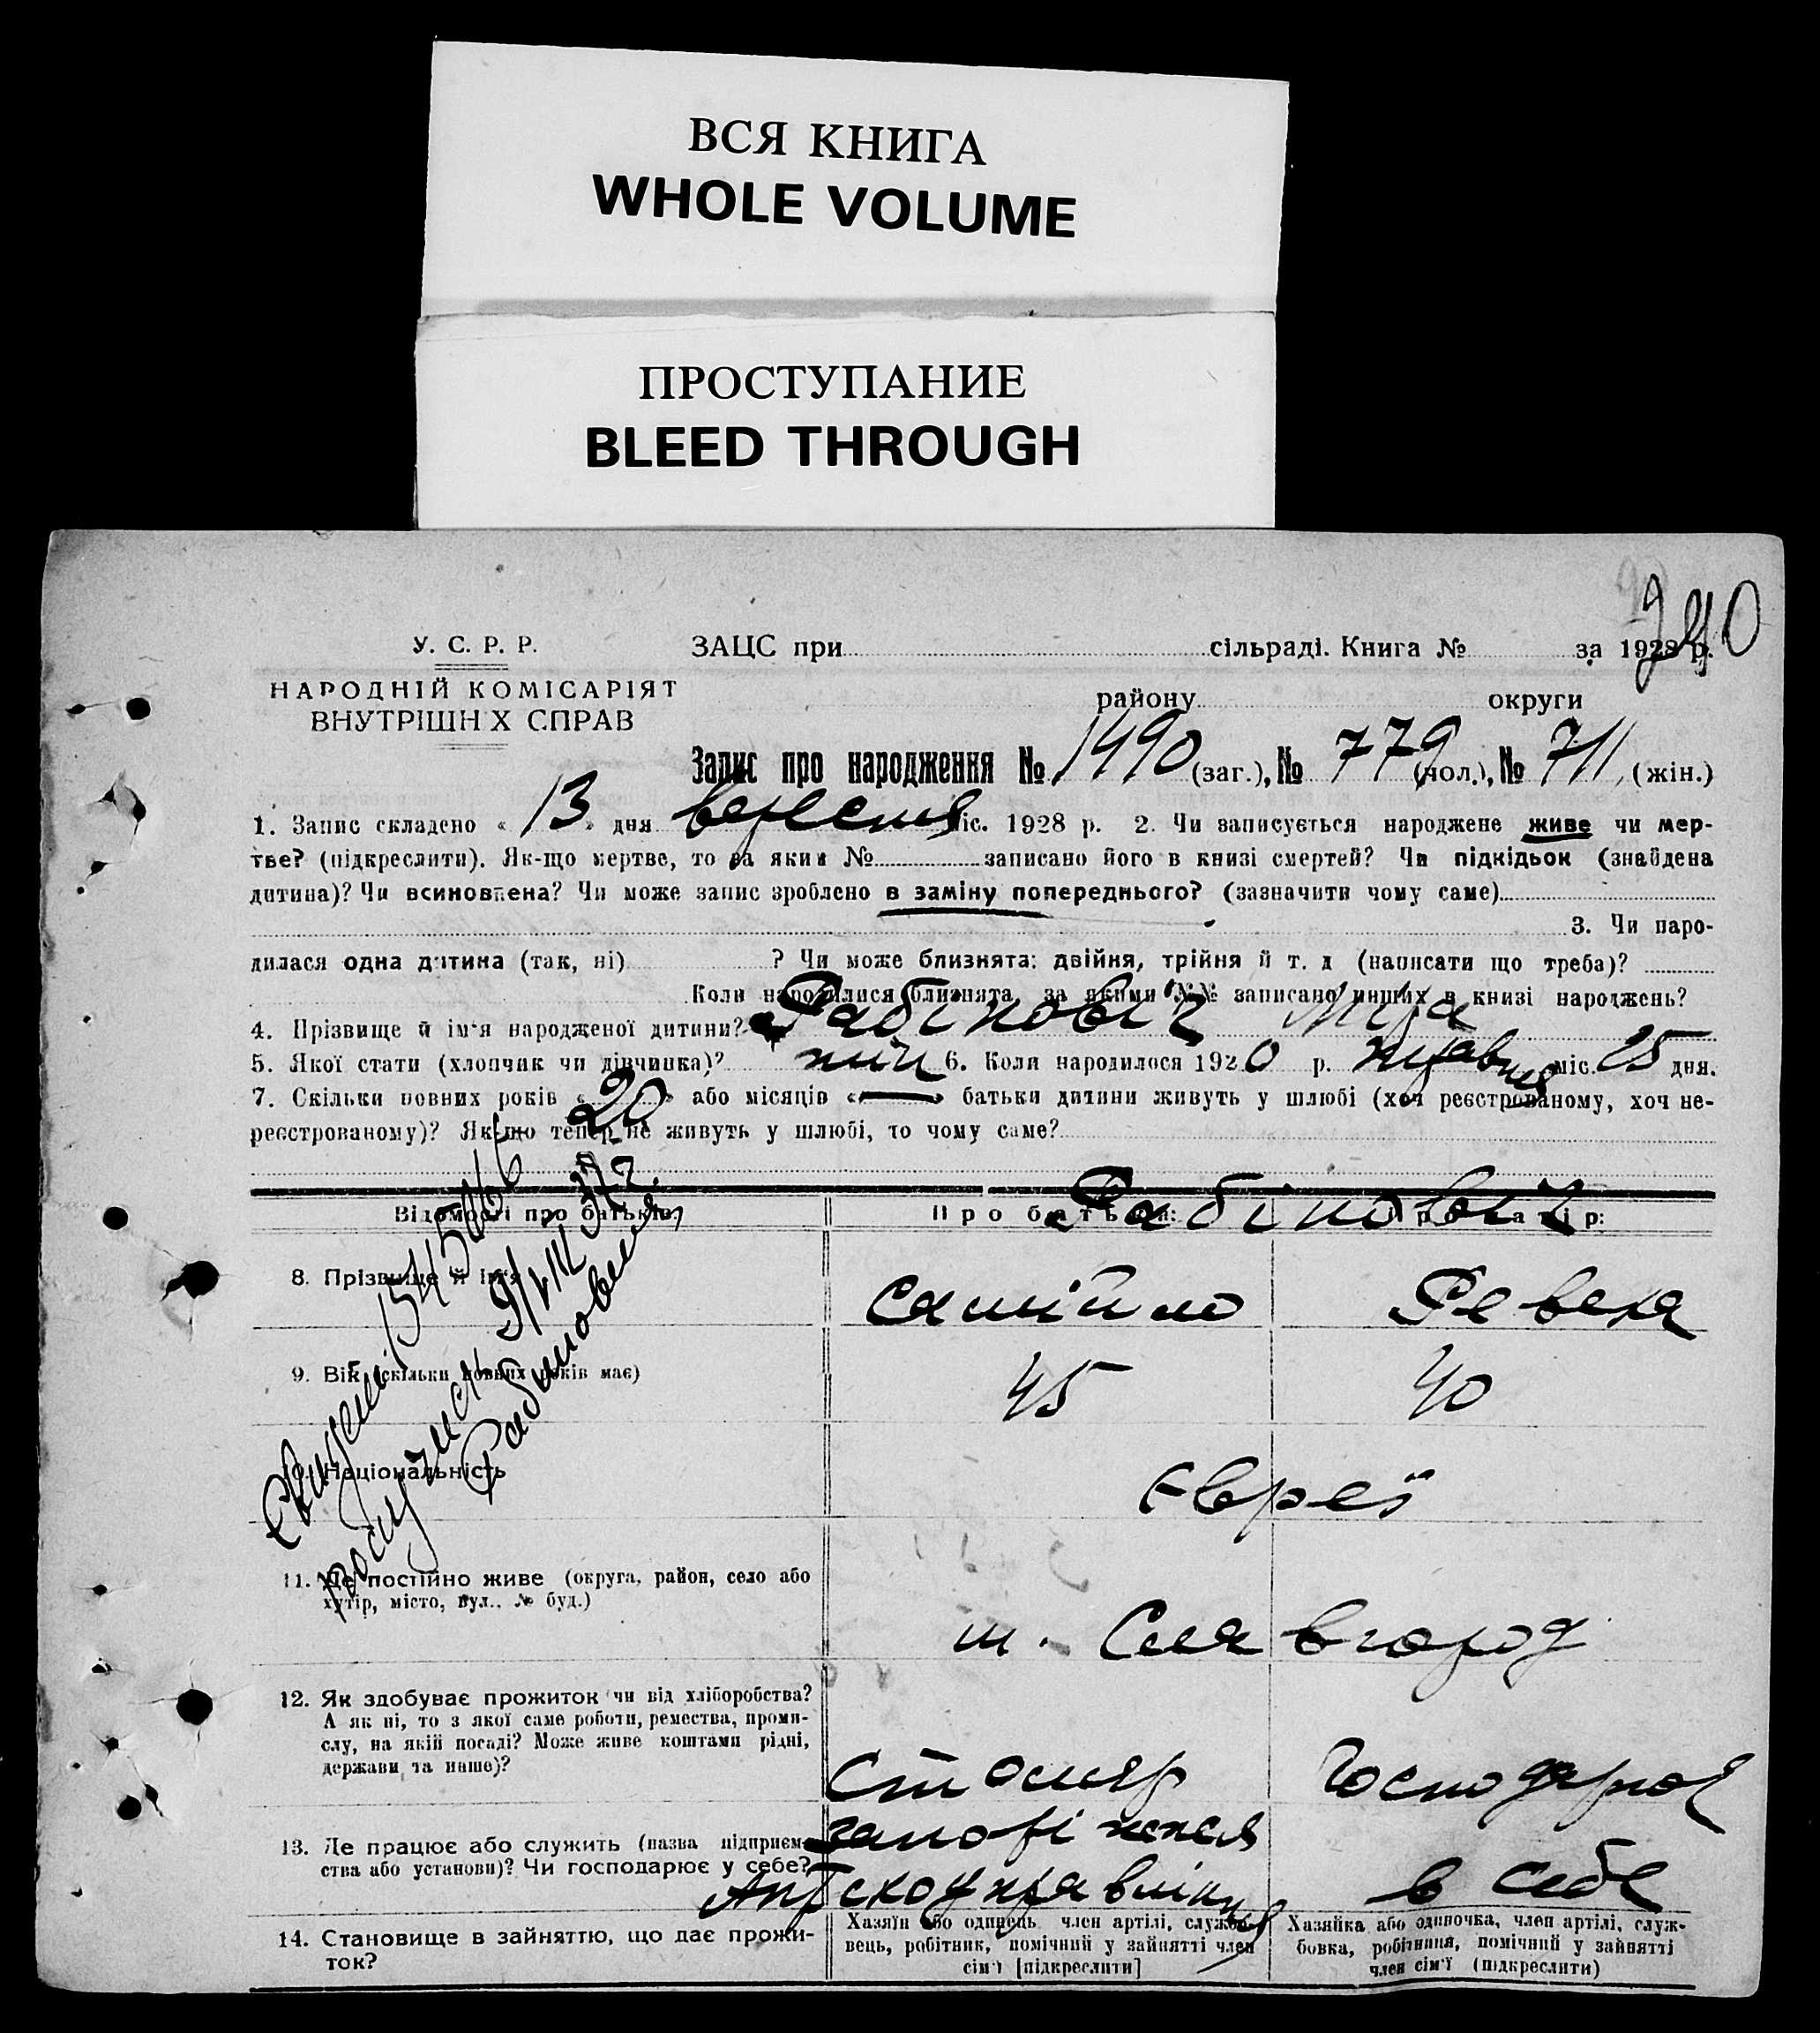 ВСЯ КНИГА
WHOLE VOLUME
ПРОСТУПАНИЕ
BLEED THROUGH
240
У. С. Р. Р.
НАРОДНІЙ КОМІСАРІЯТ
ВНУТРІШН Х СПРАВ
ЗАЦС при сільраді. Книга № за 1928 р.
району округи
Запис про народження № 1490 (заг.), № 779 (чол.), № 711 (жін.)
1. Запис складено « 13 » дня вересня міс. 1928 р. 2. Чи записується народжене живе чи мер-
тве? (підкреслити). Як-що мертве, то за яким № записано його в книзі смертей? Чи підкідьок (знайдена
дитина)? Чи всиновлена? Чи може запис зроблено в заміну попереднього? (зазначити чому саме)
3. Чи наро-
дилася одна дитина (так, ні) ? Чи може близнята: двійня, трійня й т. д (написати що треба)?
Коли народилися близнята, за якими №№ записано инших в книзі народжень?
4. Прізвище й ім'я народженої дитини? Рабінович Міра
5. Якої стати (хлопчик чи дівчинка)? 6. Коли народилося 1920 р. травня міс. 25 дня.
7. Скільки повних років « 20 » або місяців « — » батьки дитини живуть у шлюбі (хоч реєстрованому, хоч не-
реєстрованому)? Як-що тепер не живуть у шлюбі, то чому саме?
Відомості про батьків: Про батька: Про матір:
Рабінович
8. Прізвище й ім'я Самійло Ревека
9. Вік (скільки повних років має) 45 40
10. Національність Євреї
11. Де постійно живе (округа, район, село або
хутір, місто, вул.. № буд.)
ш. Славгород
12. Як здобуває прожиток чи від хліборобства?
А як ні, то з якої саме роботи, ремества, проми-
слу, на якій посаді? Може живе коштами рідні,
держави та инше)?
Столяр Господарює
13. Де працює або служить (назва підприєм-
ства або установи)? Чи господарює у себе?
в себе
14. Становище в зайняттю, що дає прожи-
ток?
Хазяїн або одинець член артілі, службо-
вець, робітник, помічний у зайнятті член
сім'ї [підкреслити]
Хазяйка або одиночка, член артілі, служ-
бовка, робітниця, помічний у зайнятті
член сім'ї (підкреслити)
Рабинович